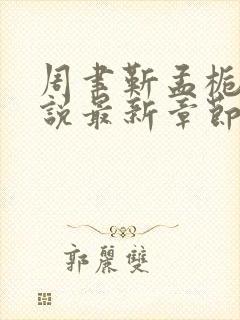 周聿靳孟栀
説最新章節
郭麗雙